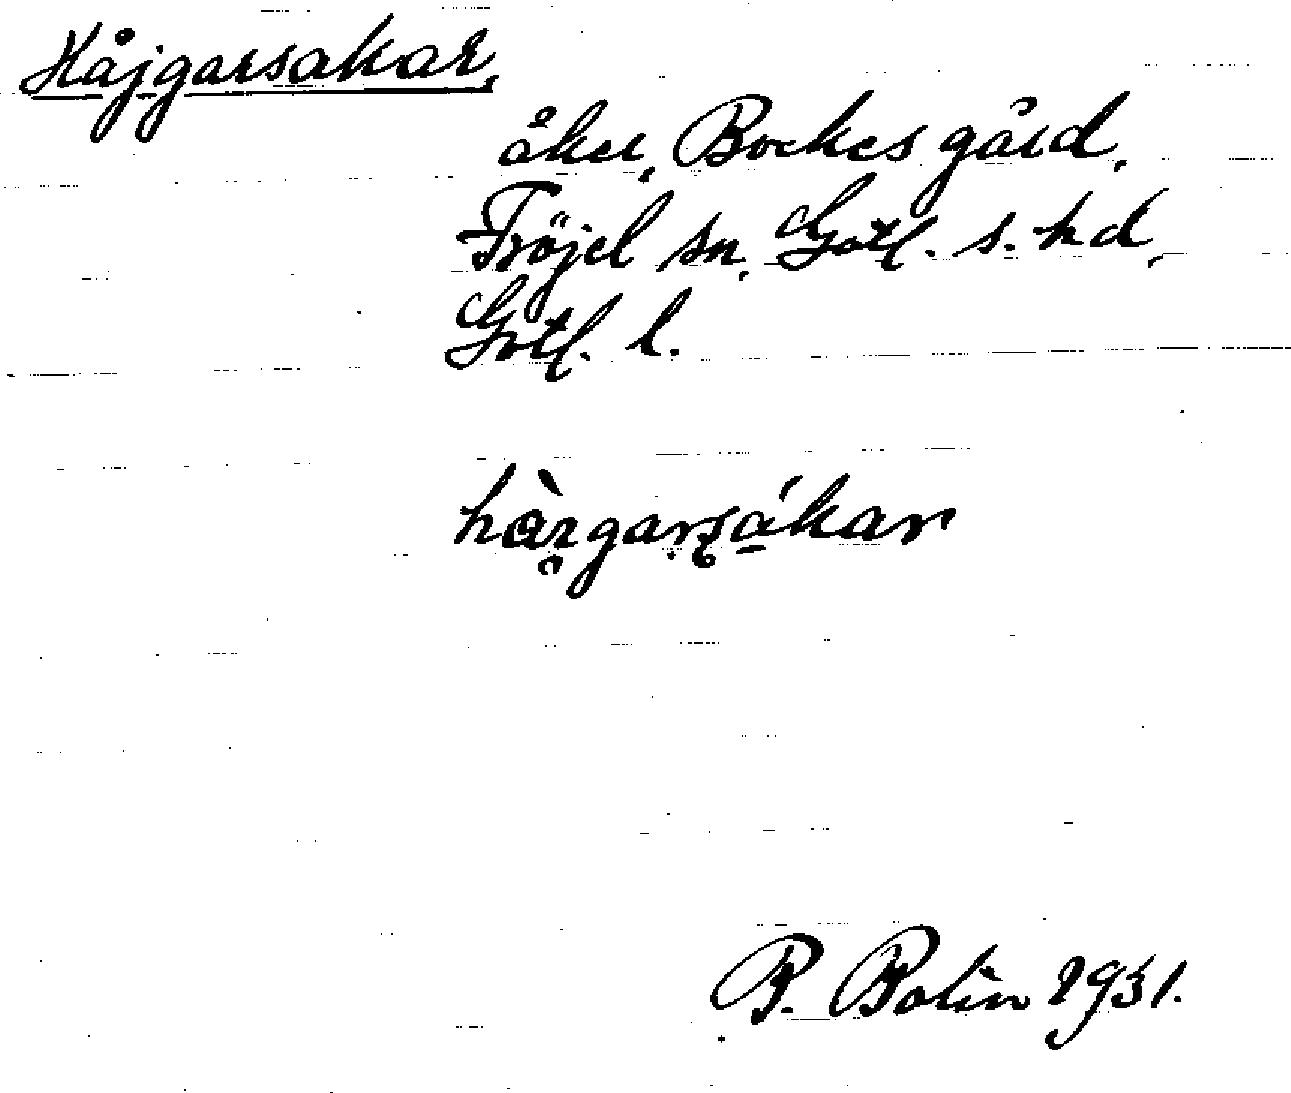 Håjgarsakar,
åker, Bockes gård,
Fröjel sn, Gotl. s. hd,
Gotl. l.
P. Bolin 1931.